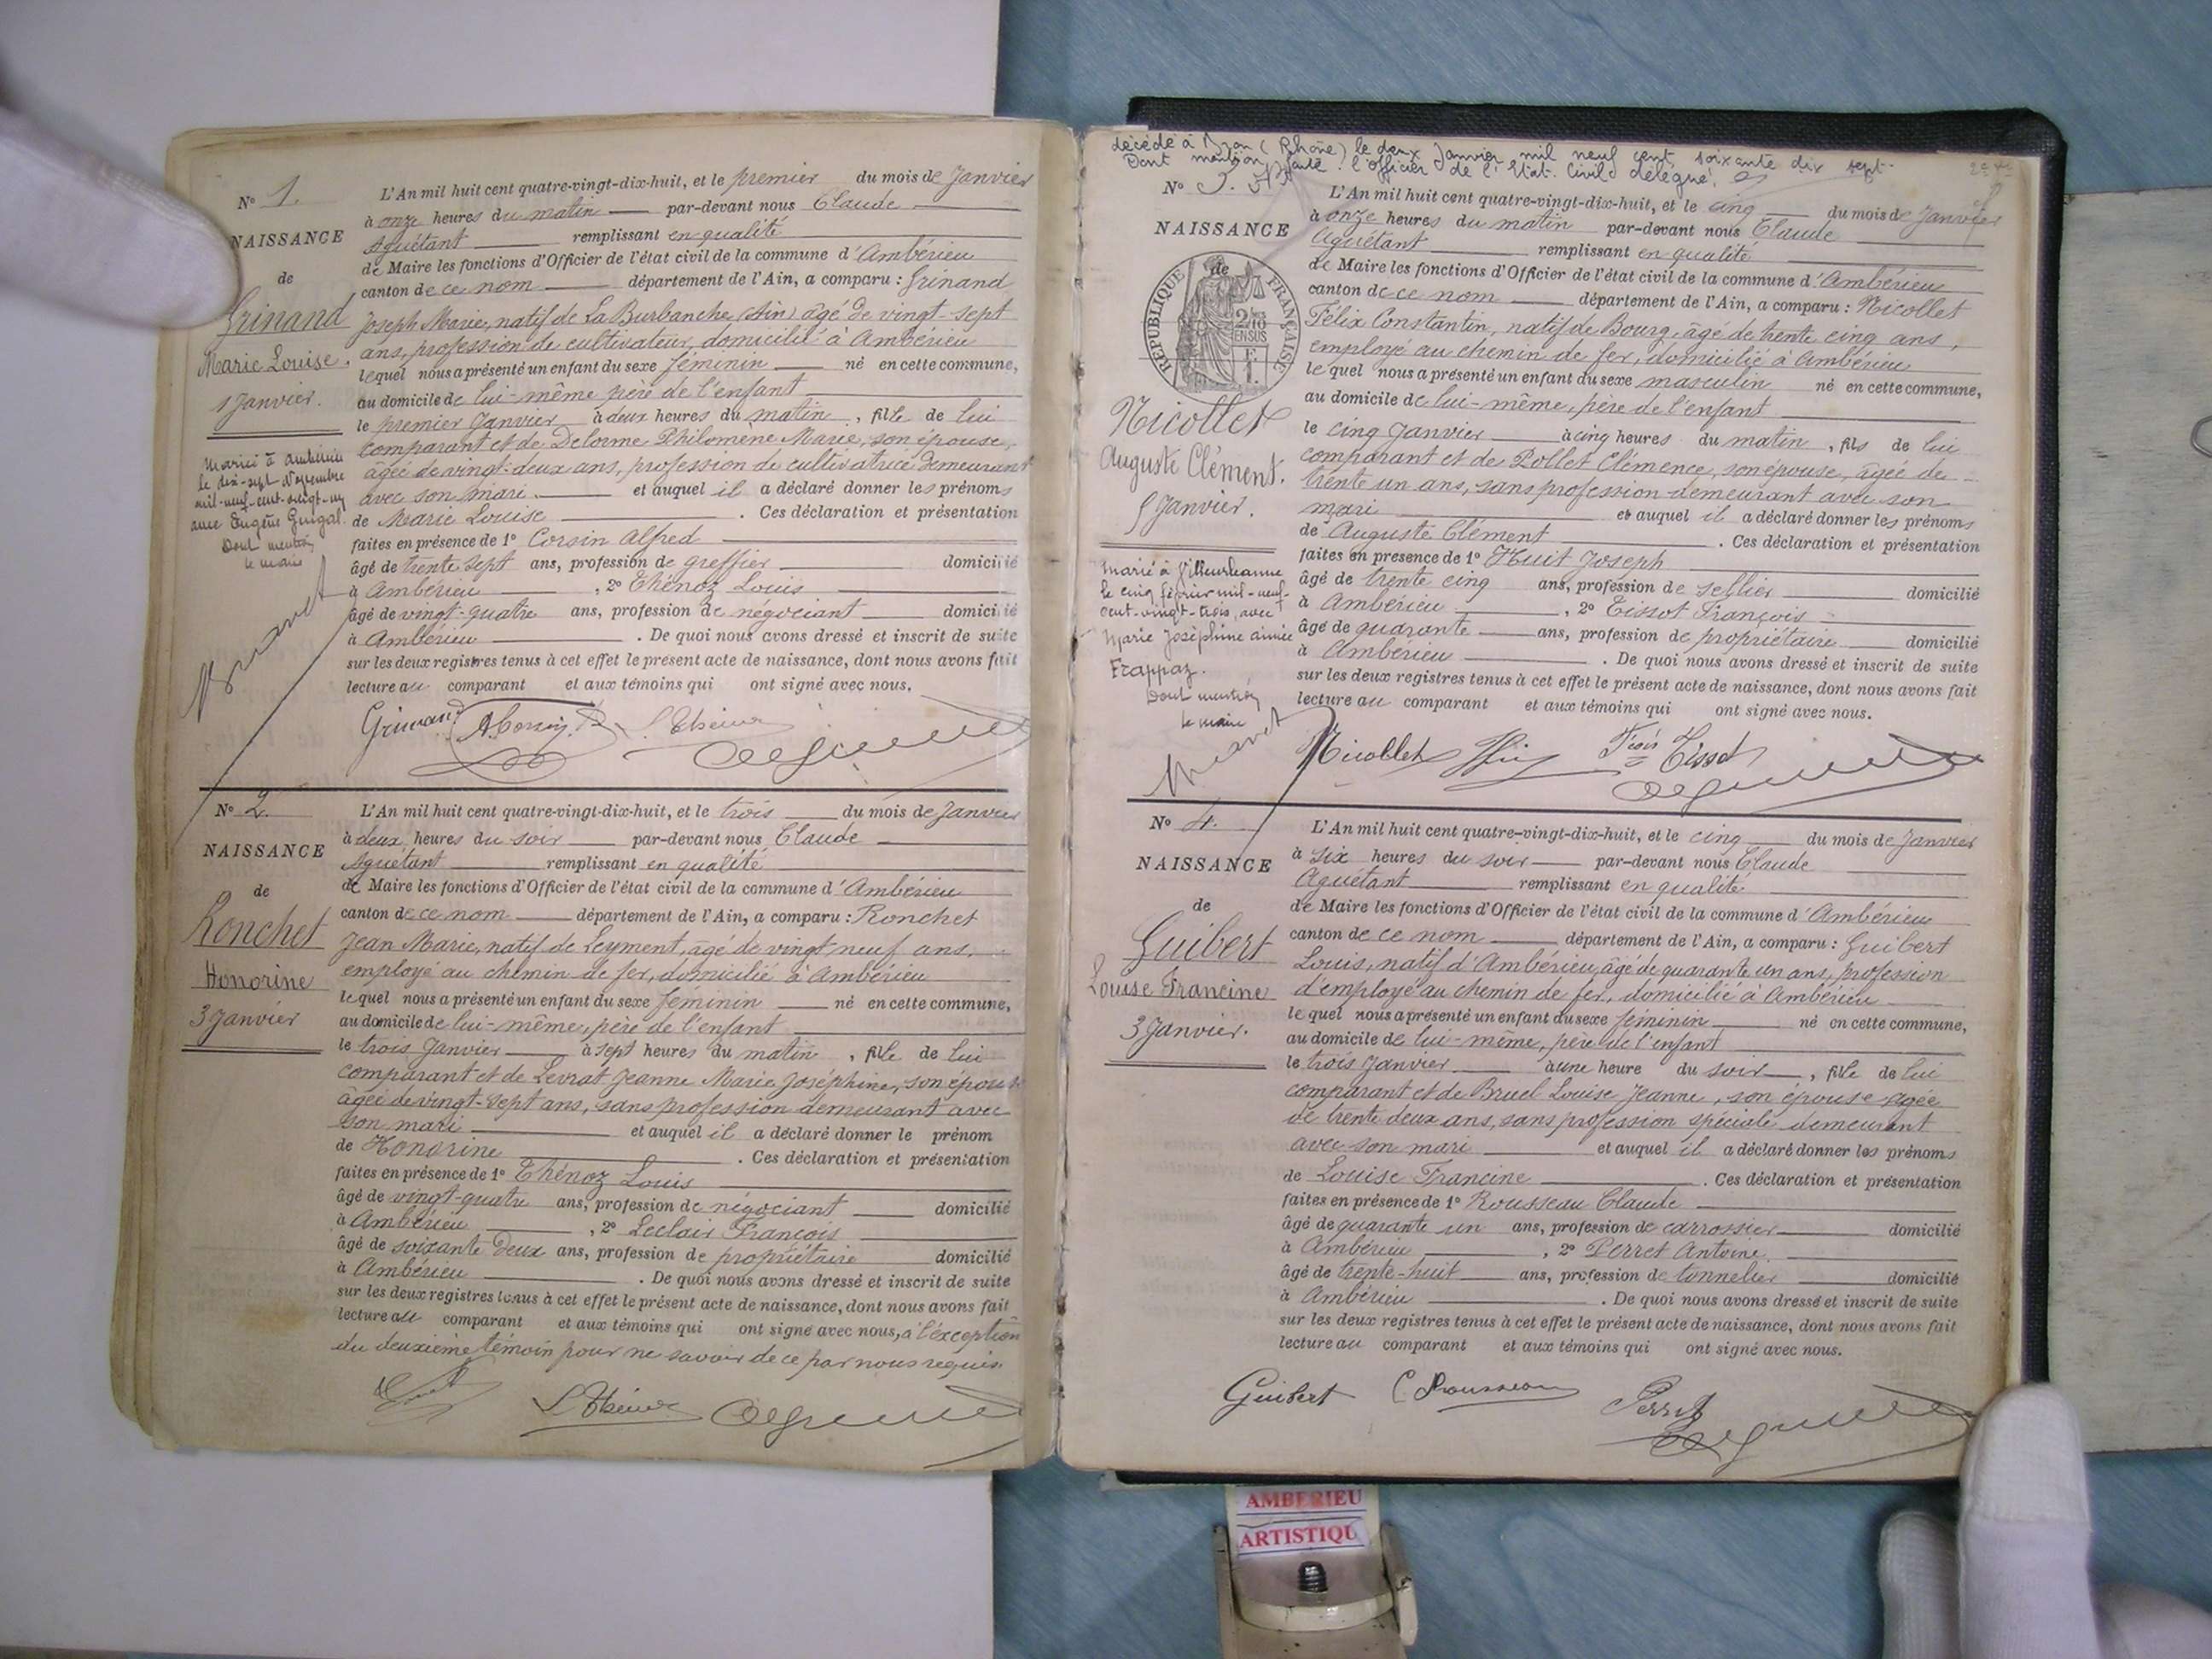 N° 1.
NAISSANCE
de
Grinand
Marie Louise.
1 Janvier.
Mariée à Ambérieu
le dix-sept Novembre
mil-neuf-cent-vingt-un
avec Eugène Guigal.
Dont mention
le maire
L'An mil huit cent quatre-vingt-dix-huit, et le premier du mois de Janvier
à onze heures du matin par-devant nous Claude
Aguétant remplissant en qualité
de Maire les fonctions d'Officier de l'état civil de la commune d'Ambérieu
canton de ce nom département de l'Ain, a comparu : Grinand
Joseph Marie, natif de La Burbanche (Ain) âgé de vingt-sept
ans, profession de cultivateur, domicilié à Ambérieu
lequel nous a présenté un enfant du sexe féminin né en cette commune,
au domicile de lui-même père de l'enfant
le premier Janvier à deux heures du matin, fille de lui
comparant et de Delorme Philomène Marie, son épouse,
âgée de vingt-deux ans, profession de cultivatrice demeurant
avec son mari et auquel il a déclaré donner les prénoms
de Marie Louise . Ces déclaration et présentation
faites en présence de 1° Corsin Alfred
âgé de trente sept ans, profession de greffier domicilié
à Ambérieu , 2° Thénoz Louis
âgé de vingt-quatre ans, profession de négociant domicilié
à Ambérieu . De quoi nous avons dressé et inscrit de suite
sur les deux registres tenus à cet effet le présent acte de naissance, dont nous avons fait
lecture au comparant et aux témoins qui ont signé avec nous.
Grinand A. Corsin L. Thénoz
N° 2.
NAISSANCE
de
Ronchet
Honorine
3 Janvier
L'An mil huit cent quatre-vingt-dix-huit, et le trois du mois de Janvier
à deux heures du soir par-devant nous Claude
Aguétant remplissant en qualité
de Maire les fonctions d'Officier de l'état civil de la commune d'Ambérieu
canton de ce nom département de l'Ain, a comparu : Ronchet
Jean Marie, natif de Leyment, âgé de vingt neuf ans,
employé au chemin de fer, domicilié à Ambérieu
lequel nous a présenté un enfant du sexe féminin né en cette commune,
au domicile de lui-même, père de l'enfant
le trois Janvier à sept heures du matin, fille de lui
comparant et de Levrat Jeanne Marie Joséphine, son épouse
âgée de vingt-sept ans, sans profession demeurant avec
son mari et auquel il a déclaré donner le prénom
de Honorine . Ces déclaration et présentation
faites en présence de 1° Thénoz Louis
âgé de vingt-quatre ans, profession de négociant domicilié
à Ambérieu , 2° Leclair François
âgé de soixante deux ans, profession de propriétaire domicilié
à Ambérieu . De quoi nous avons dressé et inscrit de suite
sur les deux registres tenus à cet effet le présent acte de naissance, dont nous avons fait
lecture au comparant et aux témoins qui ont signé avec nous, à l'exception
du deuxième témoin pour ne savoir de ce par nous requis.
L. Thénoz
décédé à Bron (Rhône) le deux Janvier mil neuf cent soixante dix sept.
Dont mention faite. l'Officier de l'Etat. Civil délégué.
N° 3.
NAISSANCE
de
RÉPUBLIQUE FRANÇAISE
2/10
EN SUS
Nicollet
Auguste Clément.
5 Janvier.
Marié à Villeurbanne
le cinq février mil-neuf-
cent-vingt-trois, avec
Marie Joséphine Aimée
Frappaz.
Dont mention
le maire
L'An mil huit cent quatre-vingt-dix-huit, et le cinq du mois de Janvier
à onze heures du matin par-devant nous Claude
Aguétant remplissant en qualité
de Maire les fonctions d'Officier de l'état civil de la commune d'Ambérieu
canton de ce nom département de l'Ain, a comparu : Nicollet
Félix Constantin, natif de Bourg, âgé de trente cinq ans,
employé au chemin de fer, domicilié à Ambérieu
lequel nous a présenté un enfant du sexe masculin né en cette commune,
au domicile de lui-même, père de l'enfant
le cinq Janvier à cinq heures du matin, fils de lui
comparant et de Pollet Clémence, son épouse, âgée de
trente un ans, sans profession demeurant avec son
mari et auquel il a déclaré donner les prénoms
de Auguste Clément . Ces déclaration et présentation
faites en présence de 1° Huit Joseph
âgé de trente cinq ans, profession de sellier domicilié
à Ambérieu , 2° Tissot François
âgé de quarante ans, profession de propriétaire domicilié
à Ambérieu . De quoi nous avons dressé et inscrit de suite
sur les deux registres tenus à cet effet le présent acte de naissance, dont nous avons fait
lecture au comparant et aux témoins qui ont signé avec nous.
Nicollet Huit Fçois Tissot
N° 4.
NAISSANCE
de
Guibert
Louise Francine
3 Janvier.
L'An mil huit cent quatre-vingt-dix-huit, et le cinq du mois de Janvier
à six heures du soir par-devant nous Claude
Aguétant remplissant en qualité
de Maire les fonctions d'Officier de l'état civil de la commune d'Ambérieu
canton de ce nom département de l'Ain, a comparu : Guibert
Louis, natif d'Ambérieu, âgé de quarante un ans, profession
d'employé au chemin de fer, domicilié à Ambérieu
lequel nous a présenté un enfant du sexe féminin né en cette commune,
au domicile de lui-même, père de l'enfant
le trois Janvier à une heure du soir, fille de lui
comparant et de Bruel Louise Jeanne, son épouse âgée
de trente deux ans, sans profession spéciale demeurant
avec son mari et auquel il a déclaré donner les prénoms
de Louise Francine . Ces déclaration et présentation
faites en présence de 1° Rousseau Claude
âgé de quarante un ans, profession de carrossier domicilié
à Ambérieu , 2° Perret Antoine
âgé de trente-huit ans, profession de tonnelier domicilié
à Ambérieu . De quoi nous avons dressé et inscrit de suite
sur les deux registres tenus à cet effet le présent acte de naissance, dont nous avons fait
lecture au comparant et aux témoins qui ont signé avec nous.
Guibert C Rousseau Perret
AMBERIEU
ARTISTIQU